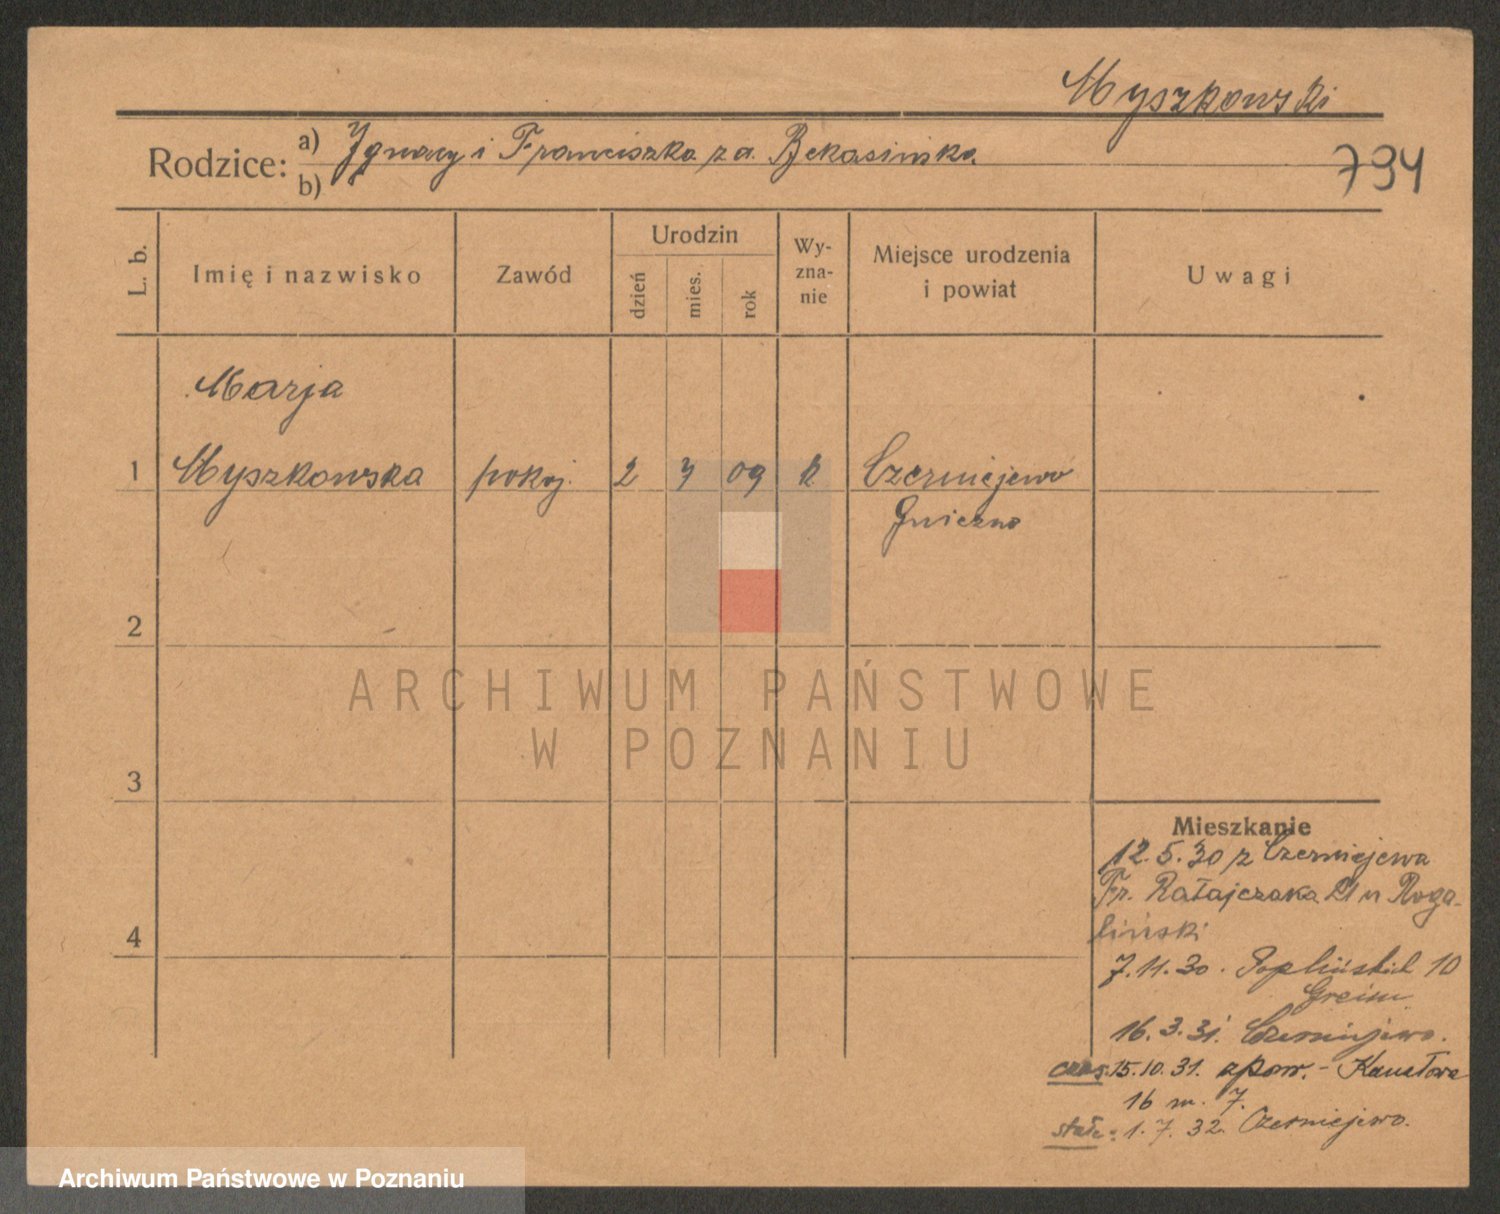 Myszkowski
Rodzice: a) Ignacy i Franciszka z d. Bekasinska
b)
794
L. b. Imię i nazwisko Zawód Urodzin dzień mies. rok Wy-zna-nie Miejsce urodzenia i powiat Uwagi
Marja
1 Myszkowska pokoj. 2 7 09 k Czerniejewo
Gniezno
2
3
4
Mieszkanie
12.5.30 z Czerniejewa
Fr. Ratajczaka 21 u Roga-
liński
7.11.30. Poplińskich 10
Greim
16.3.31. Czerniejewo.
czas. 15.10.31. zpow. - Kanałowa
16 m. 7.
stałe: 1.7.32. Czerniejewo.
ARCHIWUM PAŃSTWOWE
W POZNANIU
Archiwum Państwowe w Poznaniu